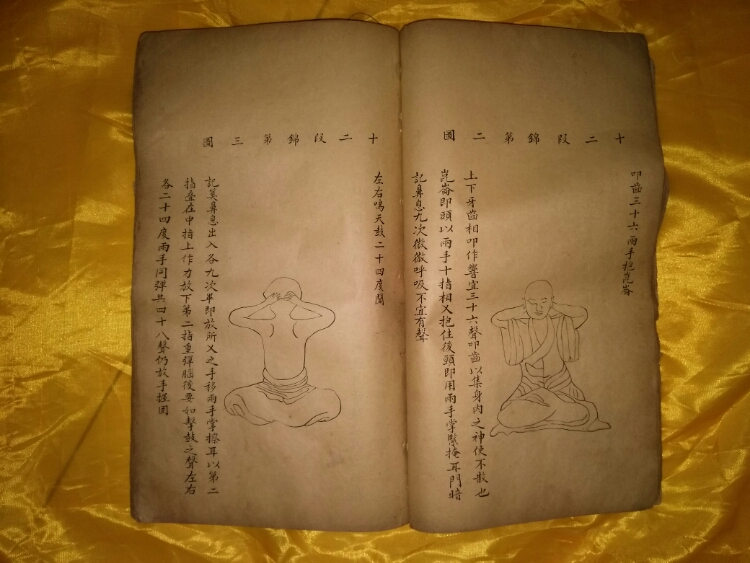 十二段錦第二圖
叩齒三十六兩手抱崑崙
上下牙齒相叩作響宜三十六聲叩齒以集身內之神使不散也
崑崙即頭以兩手十指相叉抱住後頭即用兩手掌緊掩耳門暗
記鼻息九次微微呼吸不宜有聲
十二段錦第三圖
左右鳴天鼓二十四度聞
記算鼻息出入各九次畢即放所叉之手移兩手掌擦耳以第二
指疊在中指上作力放下第二指重彈腦後要如擊鼓之聲左右
各二十四度兩手同彈共四十八聲仍放手握固